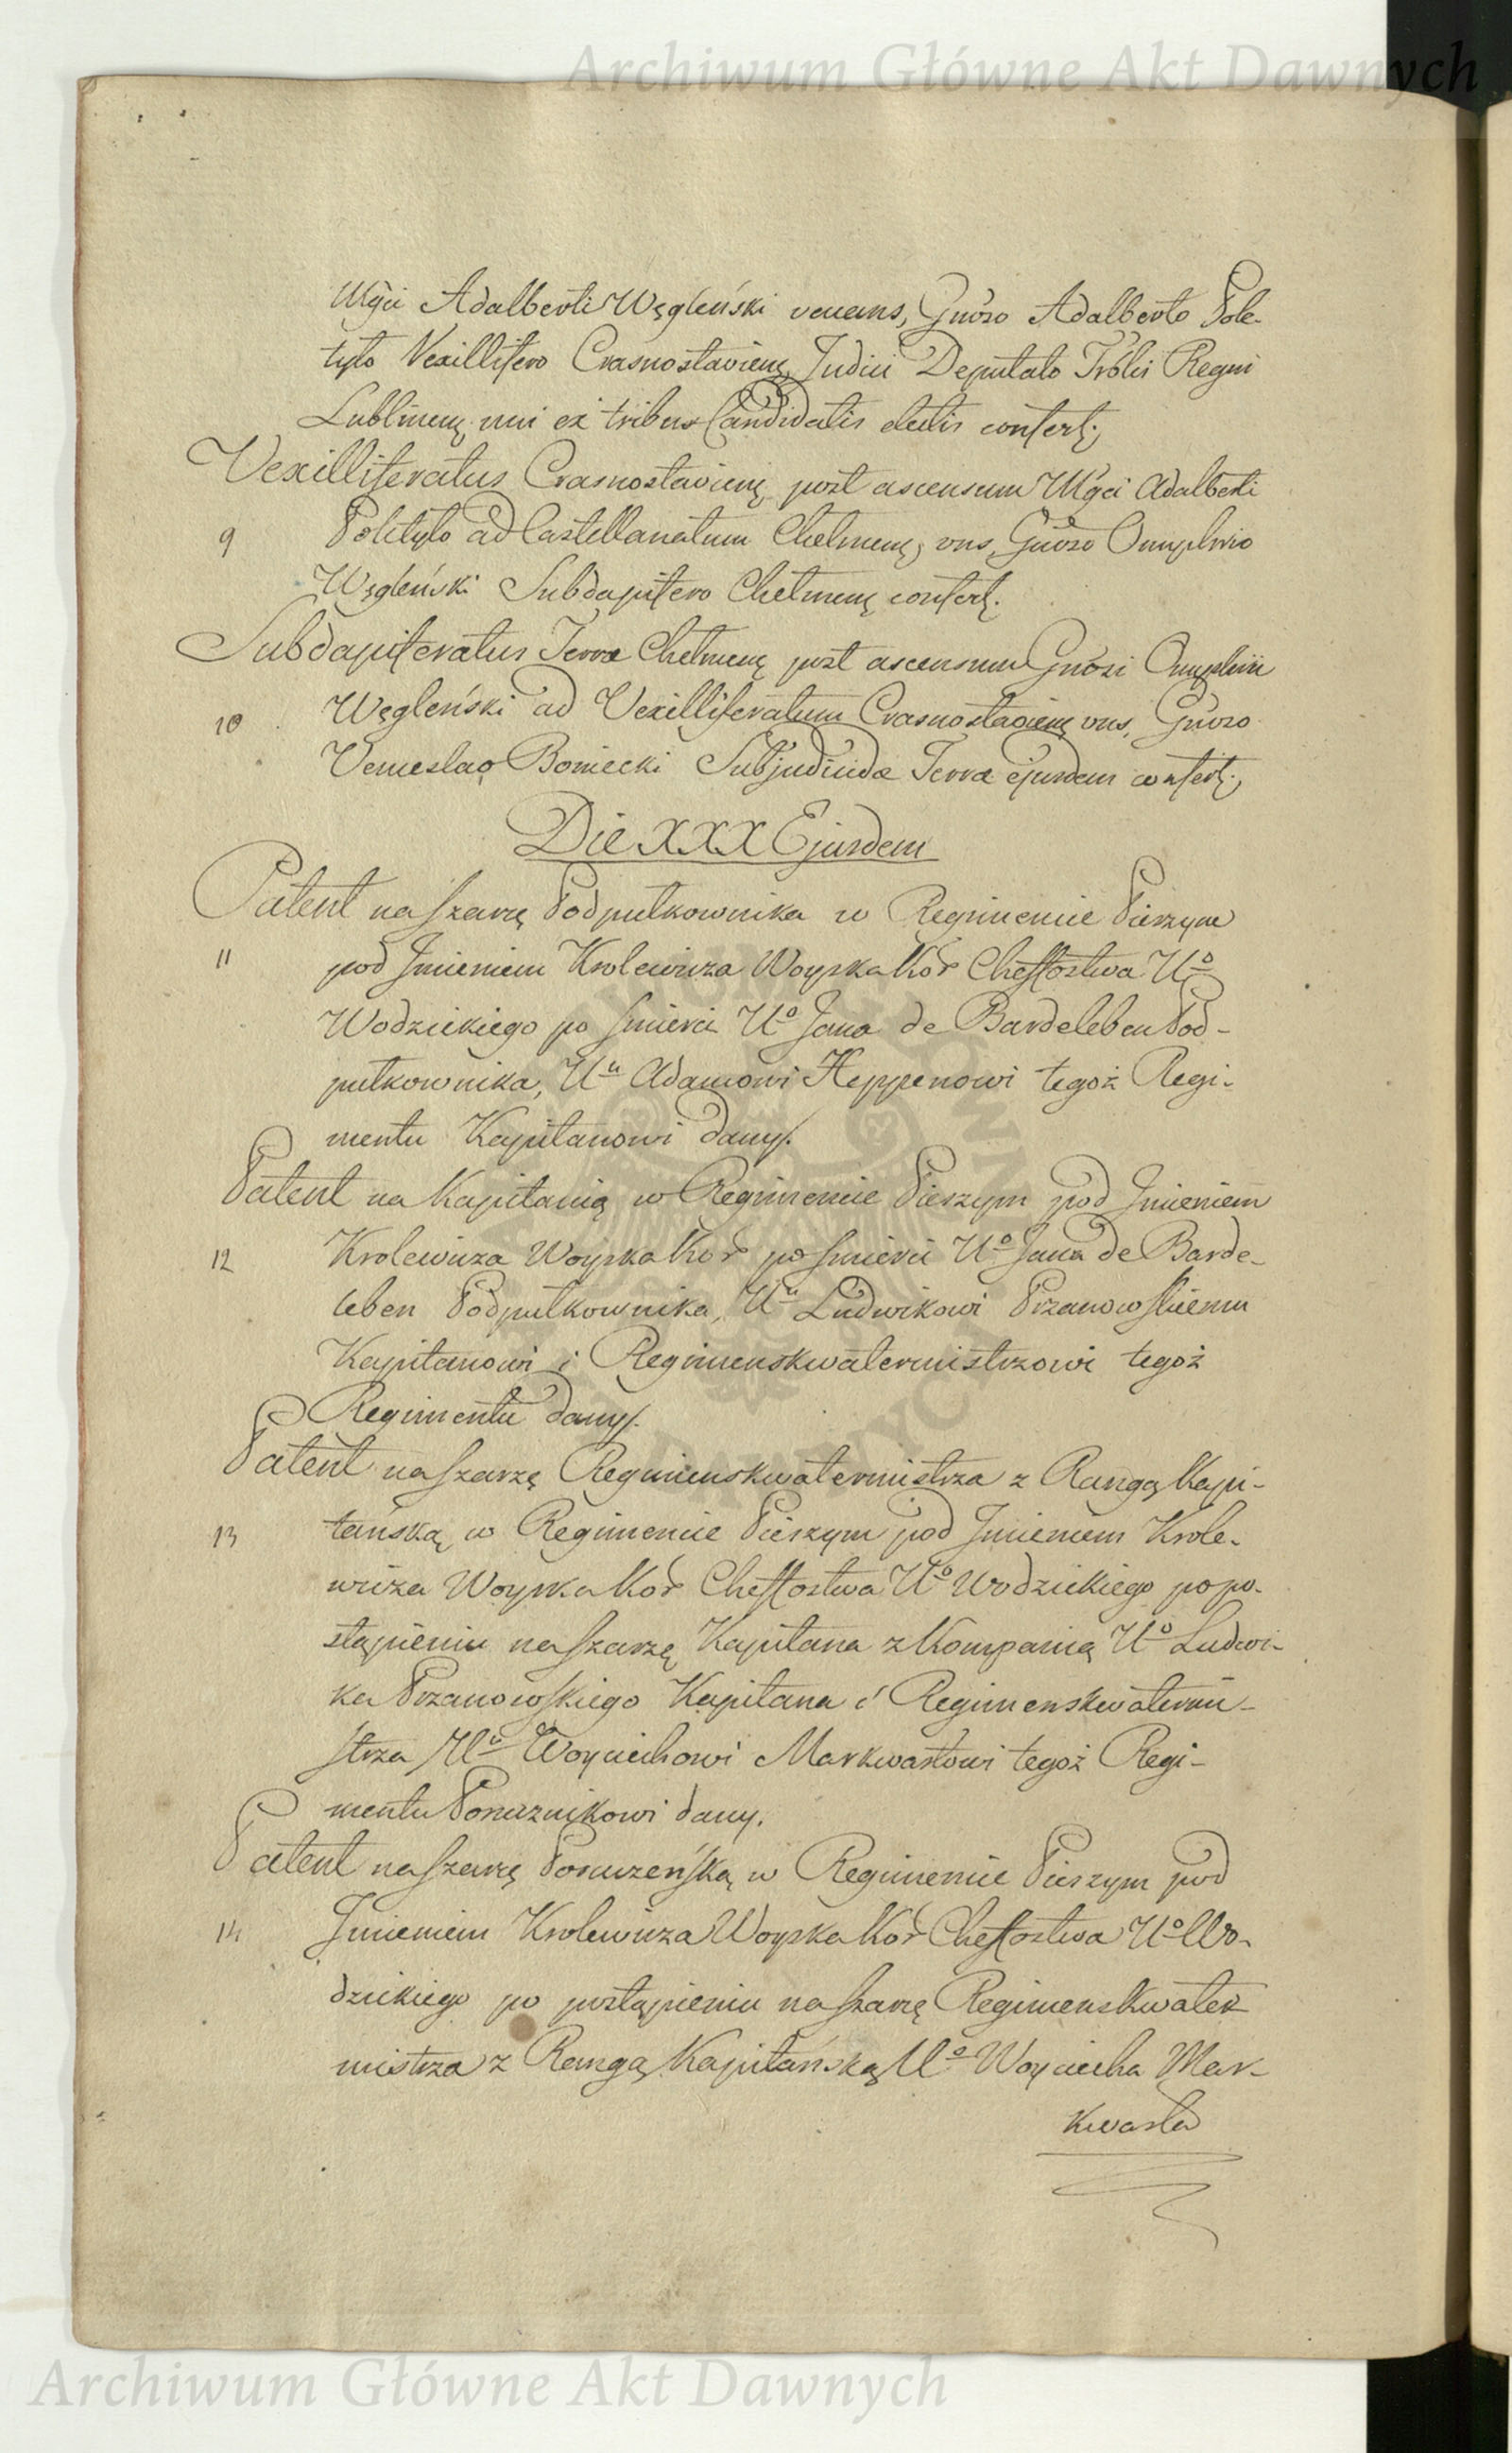 Archiwum Główne Akt Dawnych
Mgci Adalberti Węgleński vacans, Gnoso Adalberto Pole-
tyło Vexillifero Crasnostaviens, Judici Deputato Trblis Regni
Lublinens, uni ex tribus Candidatis electis confert;
Vexilliferatus Crasnostaviens post ascensum Mgci Adalberti
9 Poletyło ad Castellanatum Chelmens, vns, Gnoso Onuphrio
Węgleński Subdapifero Chelmens confert.
Subdapiferatus Terræ Chelmens post ascensum Gnosi Onuphrii
10 Węgleński ad Vexilliferatum Crasnostaviens vns, Gnoso
Venceslao Boniecki Subjudicidæ Terræ ejusdem confert;
Die XXX Ejusdem
Patent na szarżę Podpułkownika w Regimencie Pieszym
11 pod Jmieniem Krolewicza Woyska Kor Cheffostwa Uo
Wodzickiego po smierci Uo Jana de Bardeleben Pod-
pułkownika, Uu Adamowi Heppenowi tegoż Regi-
mentu Kapitanowi dany.
Patent na Kapitanią w Regimencie Pieszym pod Jmieniem
12 Krolewicza Woyska Kor po smierci Uo Jana de Barde-
leben Podpułkownika, Uu Ludwikowi Przanowskiemu
Kapitanowi i Regimenskwatermistrzowi tegoż
Regimentu dany.
Patent na szarżę Regimenskwatermistrza z Rangą Kapi-
13 tańską w Regimencie Pieszym pod Jmieniem Krole-
wicza Woyska Kor Cheffostwa Uo Wodzickiego po po-
stąpieniu na szarżę Kapitana z Kompanią Uo Ludwi-
ka Przanowskiego Kapitana i Regimenskwatermi-
strza Uu Woyciechowi Markwartowi tegoż Regi-
mentu Porucznikowi dany.
Patent na szarżę Poruczeńską w Regimencie Pieszym pod
14 Jmieniem Krolewicza Woyska Kor Cheffostwa Uo Wo-
dzickiego po postąpieniu na szarżę Regimenskwater
mistrza z Rangą Kapitańską Uo Woyciecha Mar-
kwarta
Archiwum Główne Akt Dawnych